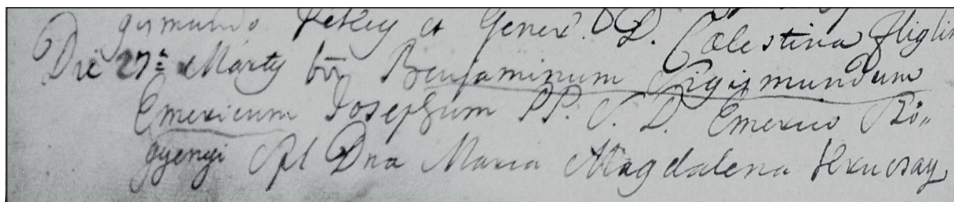 gismundo Petkey et Generi. D. D. Cælestina
Die 27ª Marty br Benjaminum Sigismundum
Emericum Josephum PP. S. D. Emerico Bö„
gyenyi Spl Dna Maria Magdalena Hrussay